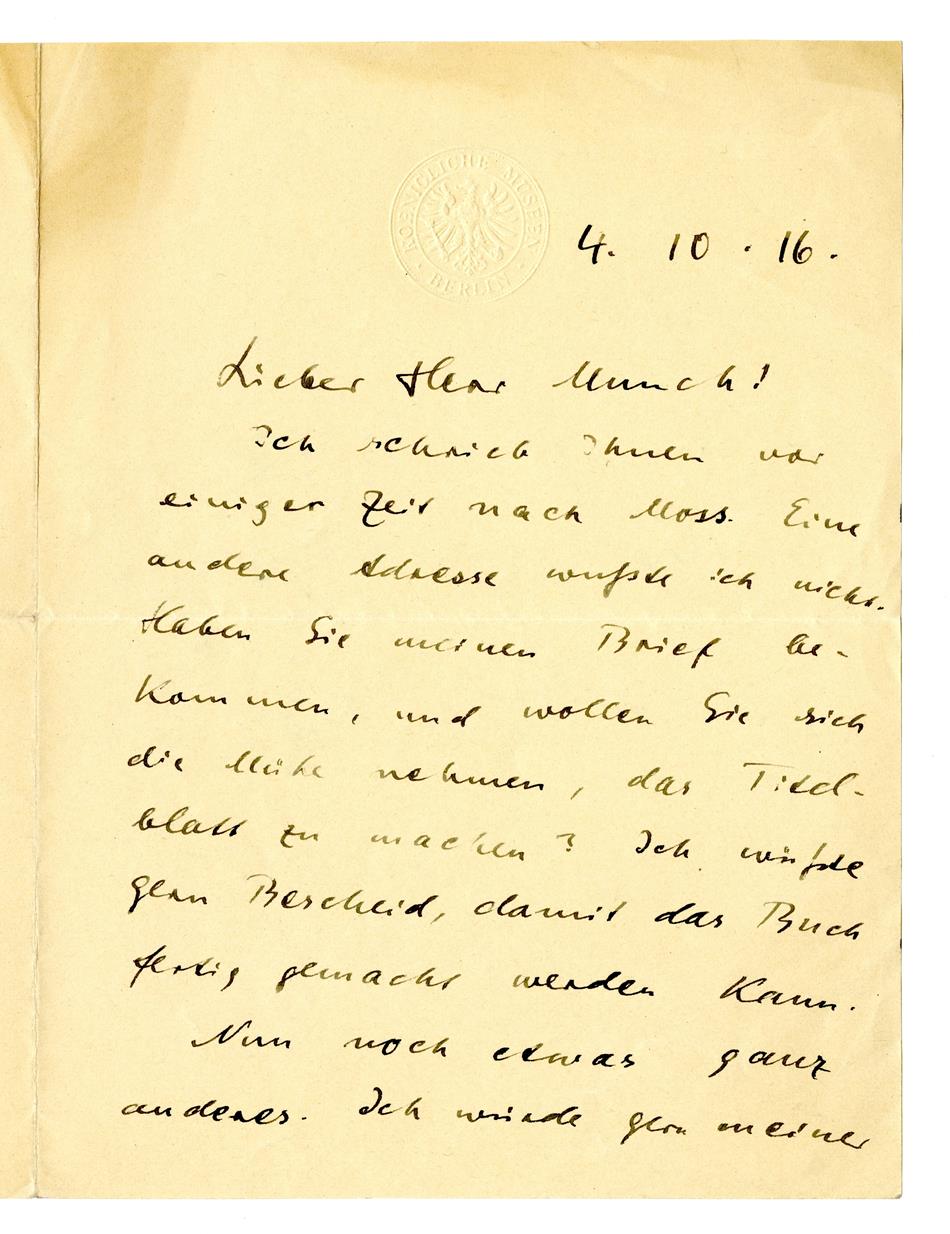 KOENIGLICHE MUSEEN
· BERLIN ·
4. 10. 16.
Lieber Herr Munch!
Ich schrieb Ihnen vor
einiger Zeit nach Moss. Eine
andere Adresse wußte ich nicht.
Haben Sie meinen Brief be-
kommen, und wollen Sie sich
die Mühe nehmen, das Titel-
blatt zu machen? Ich wüßte
gern Bescheid, damit das Buch
fertig gemacht werden kann.
Nun noch etwas ganz
anderes. Ich würde gern meiner